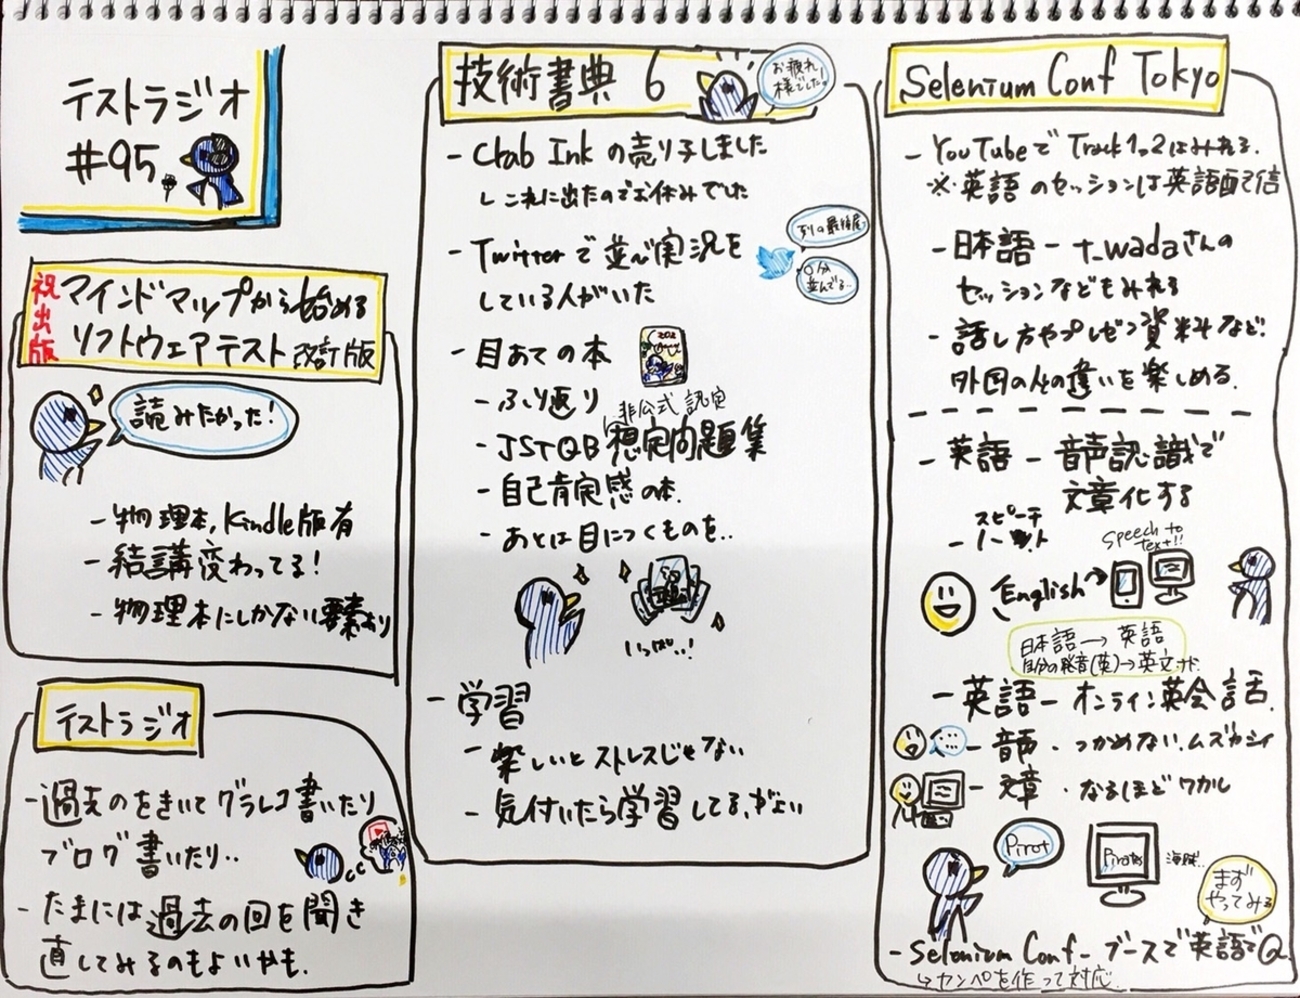 テストラジオ
#95
祝出版
マインドマップから始める
ソフトウェアテスト 改訂版
読みたかった！
- 物理本, Kindle版有
- 結講変わってる！
- 物理本にしかない要素あり
テストラジオ
- 過去のをきいてグラレコ書いたり
ブログ書いたり‥
- たまには過去の回を聞き
直してみるのもよいやも.
技術書典 6
お疲れ
様でした！
の売り子しました
これに出たのでお休みでした
- Twitterで並べ実況を
している人がいた
列の最後尾
分
並んでる‥
- 目あての本
- ふり返り
非公式 認定
- JSTQB 想定問題集
- 自己肯定感の本.
- あとは目につくものを‥
いっぱい‥！
- 学習
- 楽しいとストレスじゃない
- 気付いたら学習してる、がよい
Selenium Conf Tokyo
- YouTubeで Track1,2はみれる.
※ 英語のセッションは英語配信
- 日本語 - t_wadaさんの
セッションなどもみれる
- 話し方やプレゼン資料など！
外国の人との違いを楽しめる.
- 英語 - 音声認識で
文章化する
スピーチ
Speech to
text!!
English
日本語 → 英語
自分の発音(英)→英文
- 英語 - オンライン英会話.
- 音声 ・ つかめない. ムズカシイ
- 文章 ・ なるほどワカル
Pirot
Pirates
海賊‥
まず
やってみる
- Selenium Conf - ブースで英語でQ
↳ カンペを作って対応.